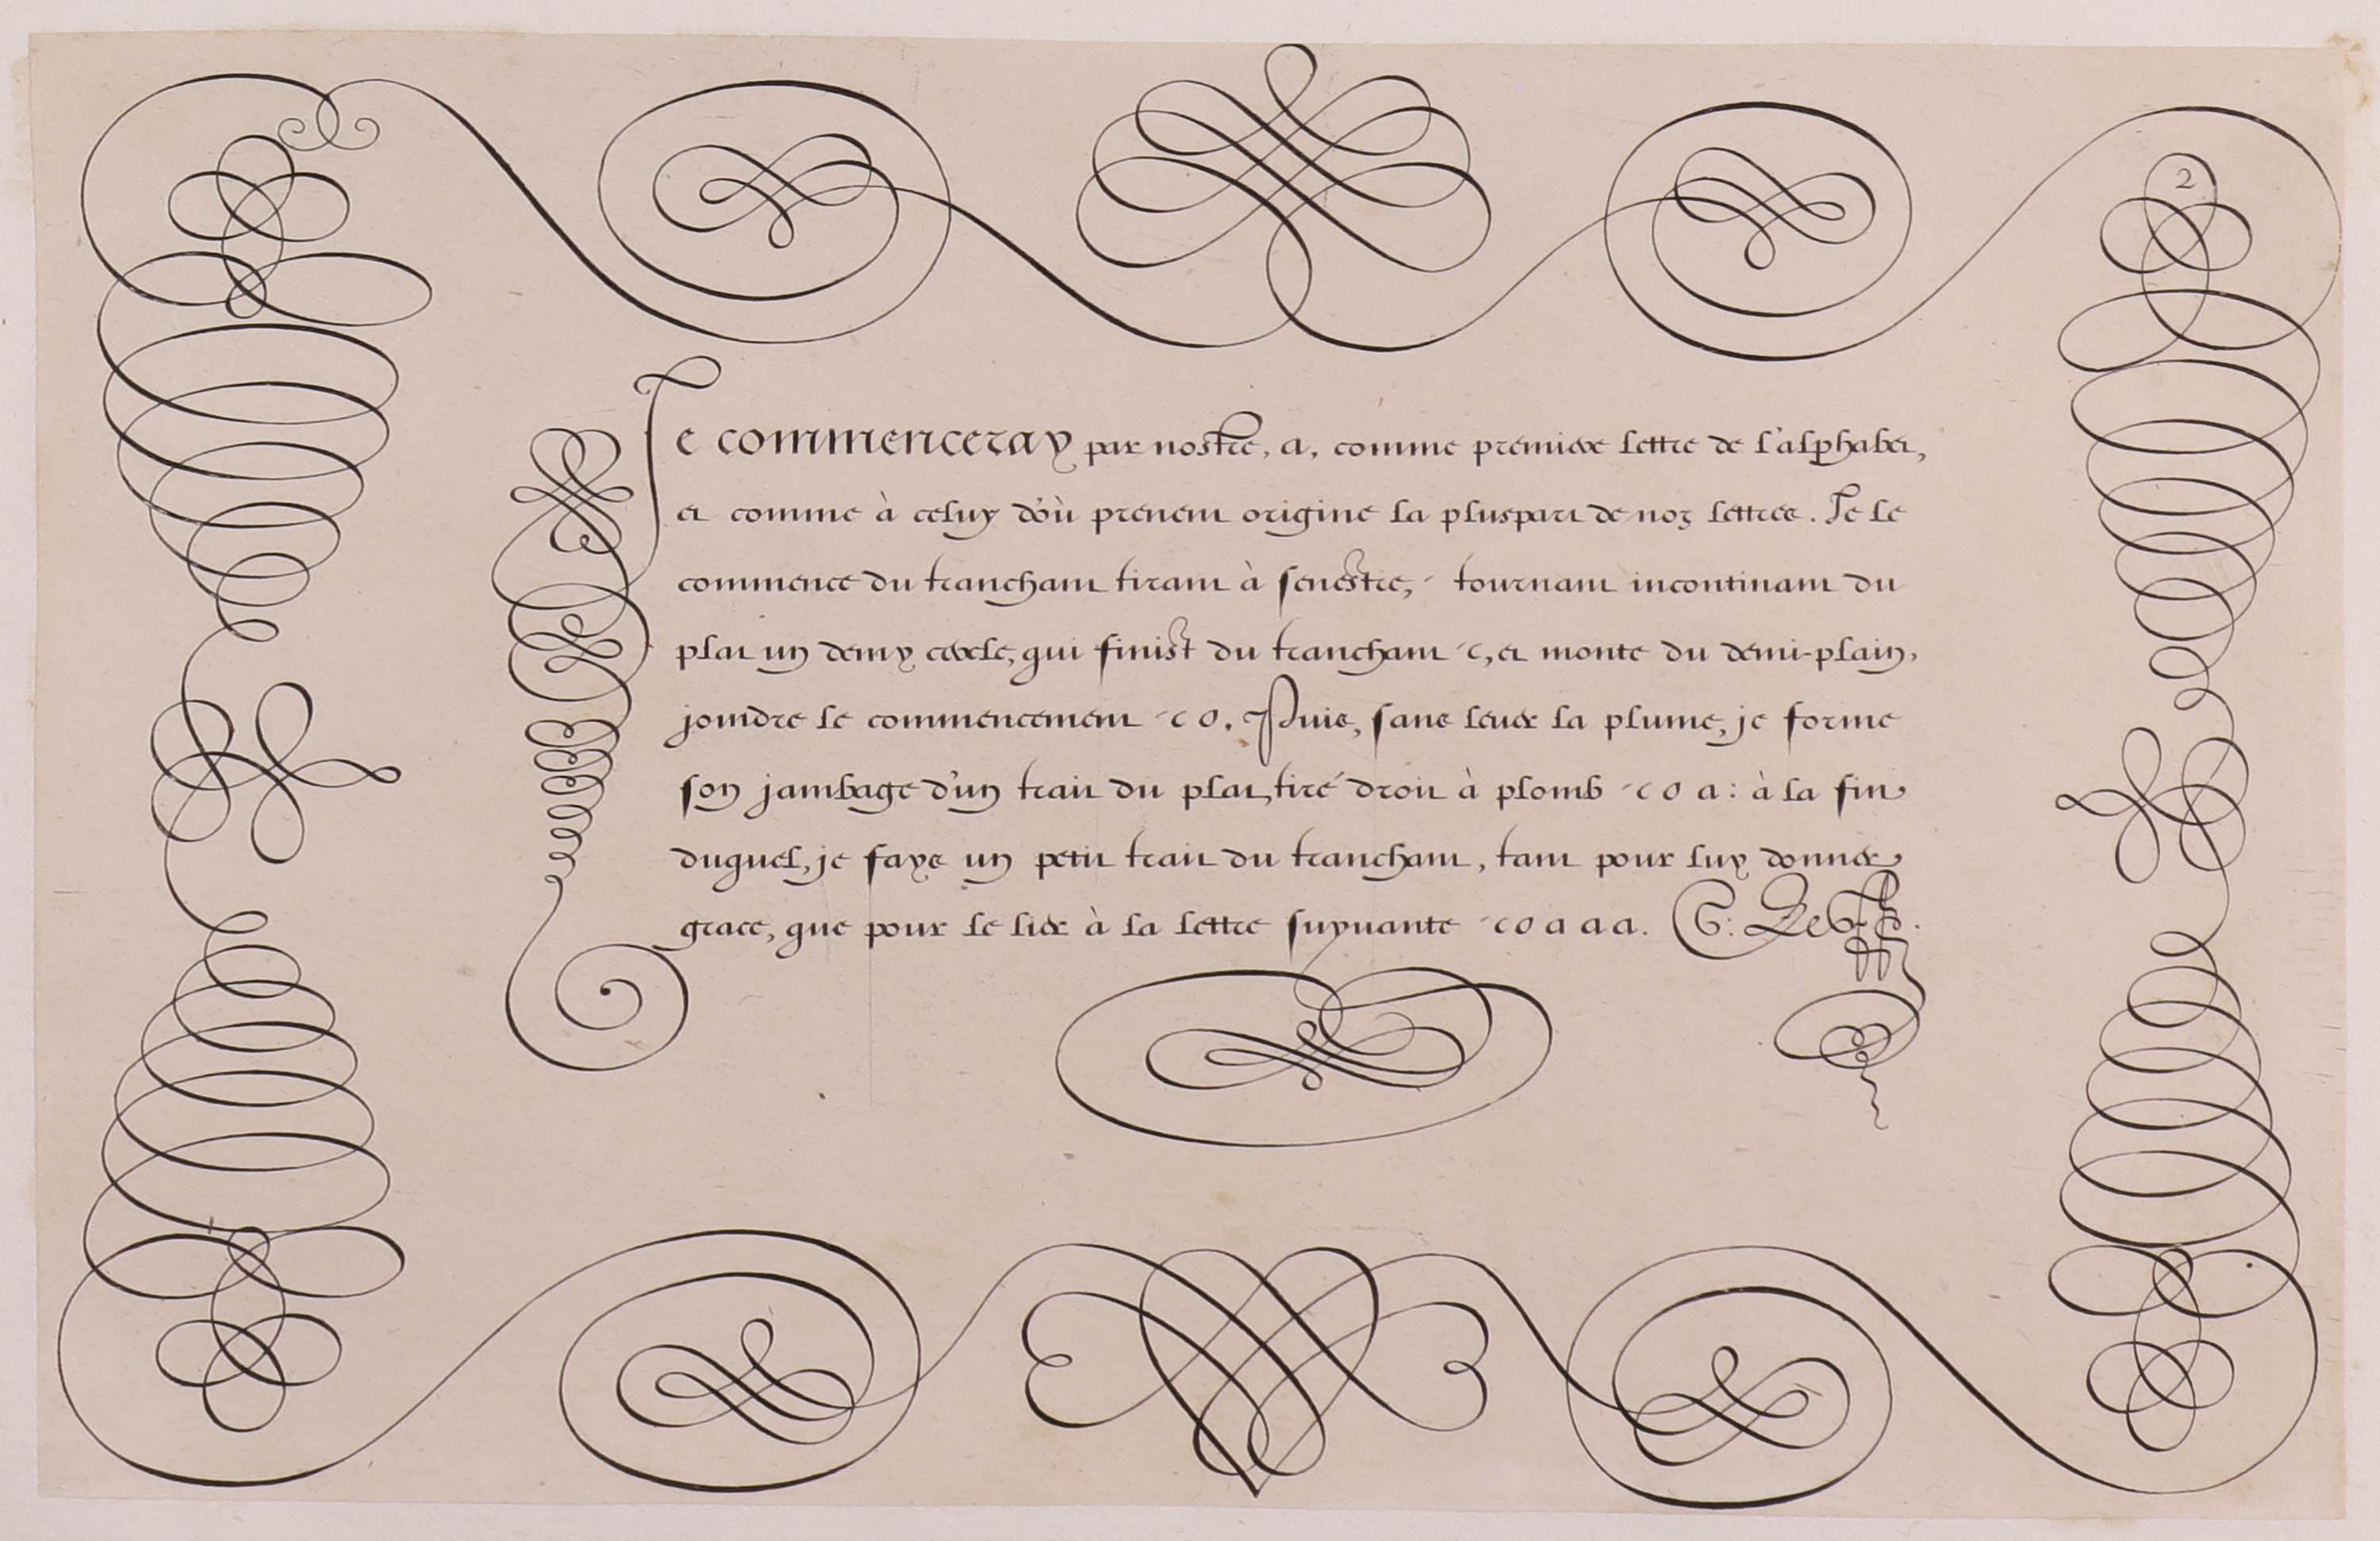 2
Je commenceray par nostre, a, comme premiere lettre de l'alphabet,
et comme à celuy d'où prenent origine la pluspart de noz lettres. Je le
commence du tranchant tirant à senestre, ˊ tournant incontinant du
plat un demy cercle, qui finist du tranchant ˊc, et monte du demi-plain,
joindre le commencement ˊc o. Puis, sans lever la plume, je forme
son jambage d'un trait du plat, tiré droit à plomb ˊc o a: à la fin
duquel, je fays un petit trait du tranchant, tant pour luy donner
grace, que pour le lier à la lettre suyvante ˊc o a a a. G: